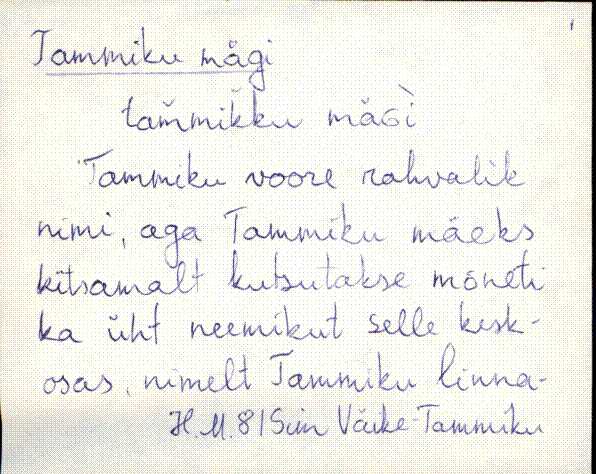 1
Tammiku mägi
tam̆mik̆ku mäGì
Tammiku voore rahvalik
nimi, aga Tammiku mäeks
kitsamalt kutsutakse mõneti
ka üht neemikut selle kesk-
osas, nimelt Tammiku linna-
H.M. 81 Siin Väike-Tammiku